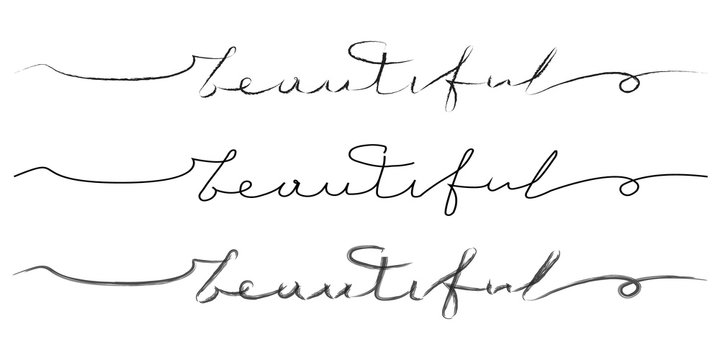 beautiful
beautiful
beautiful